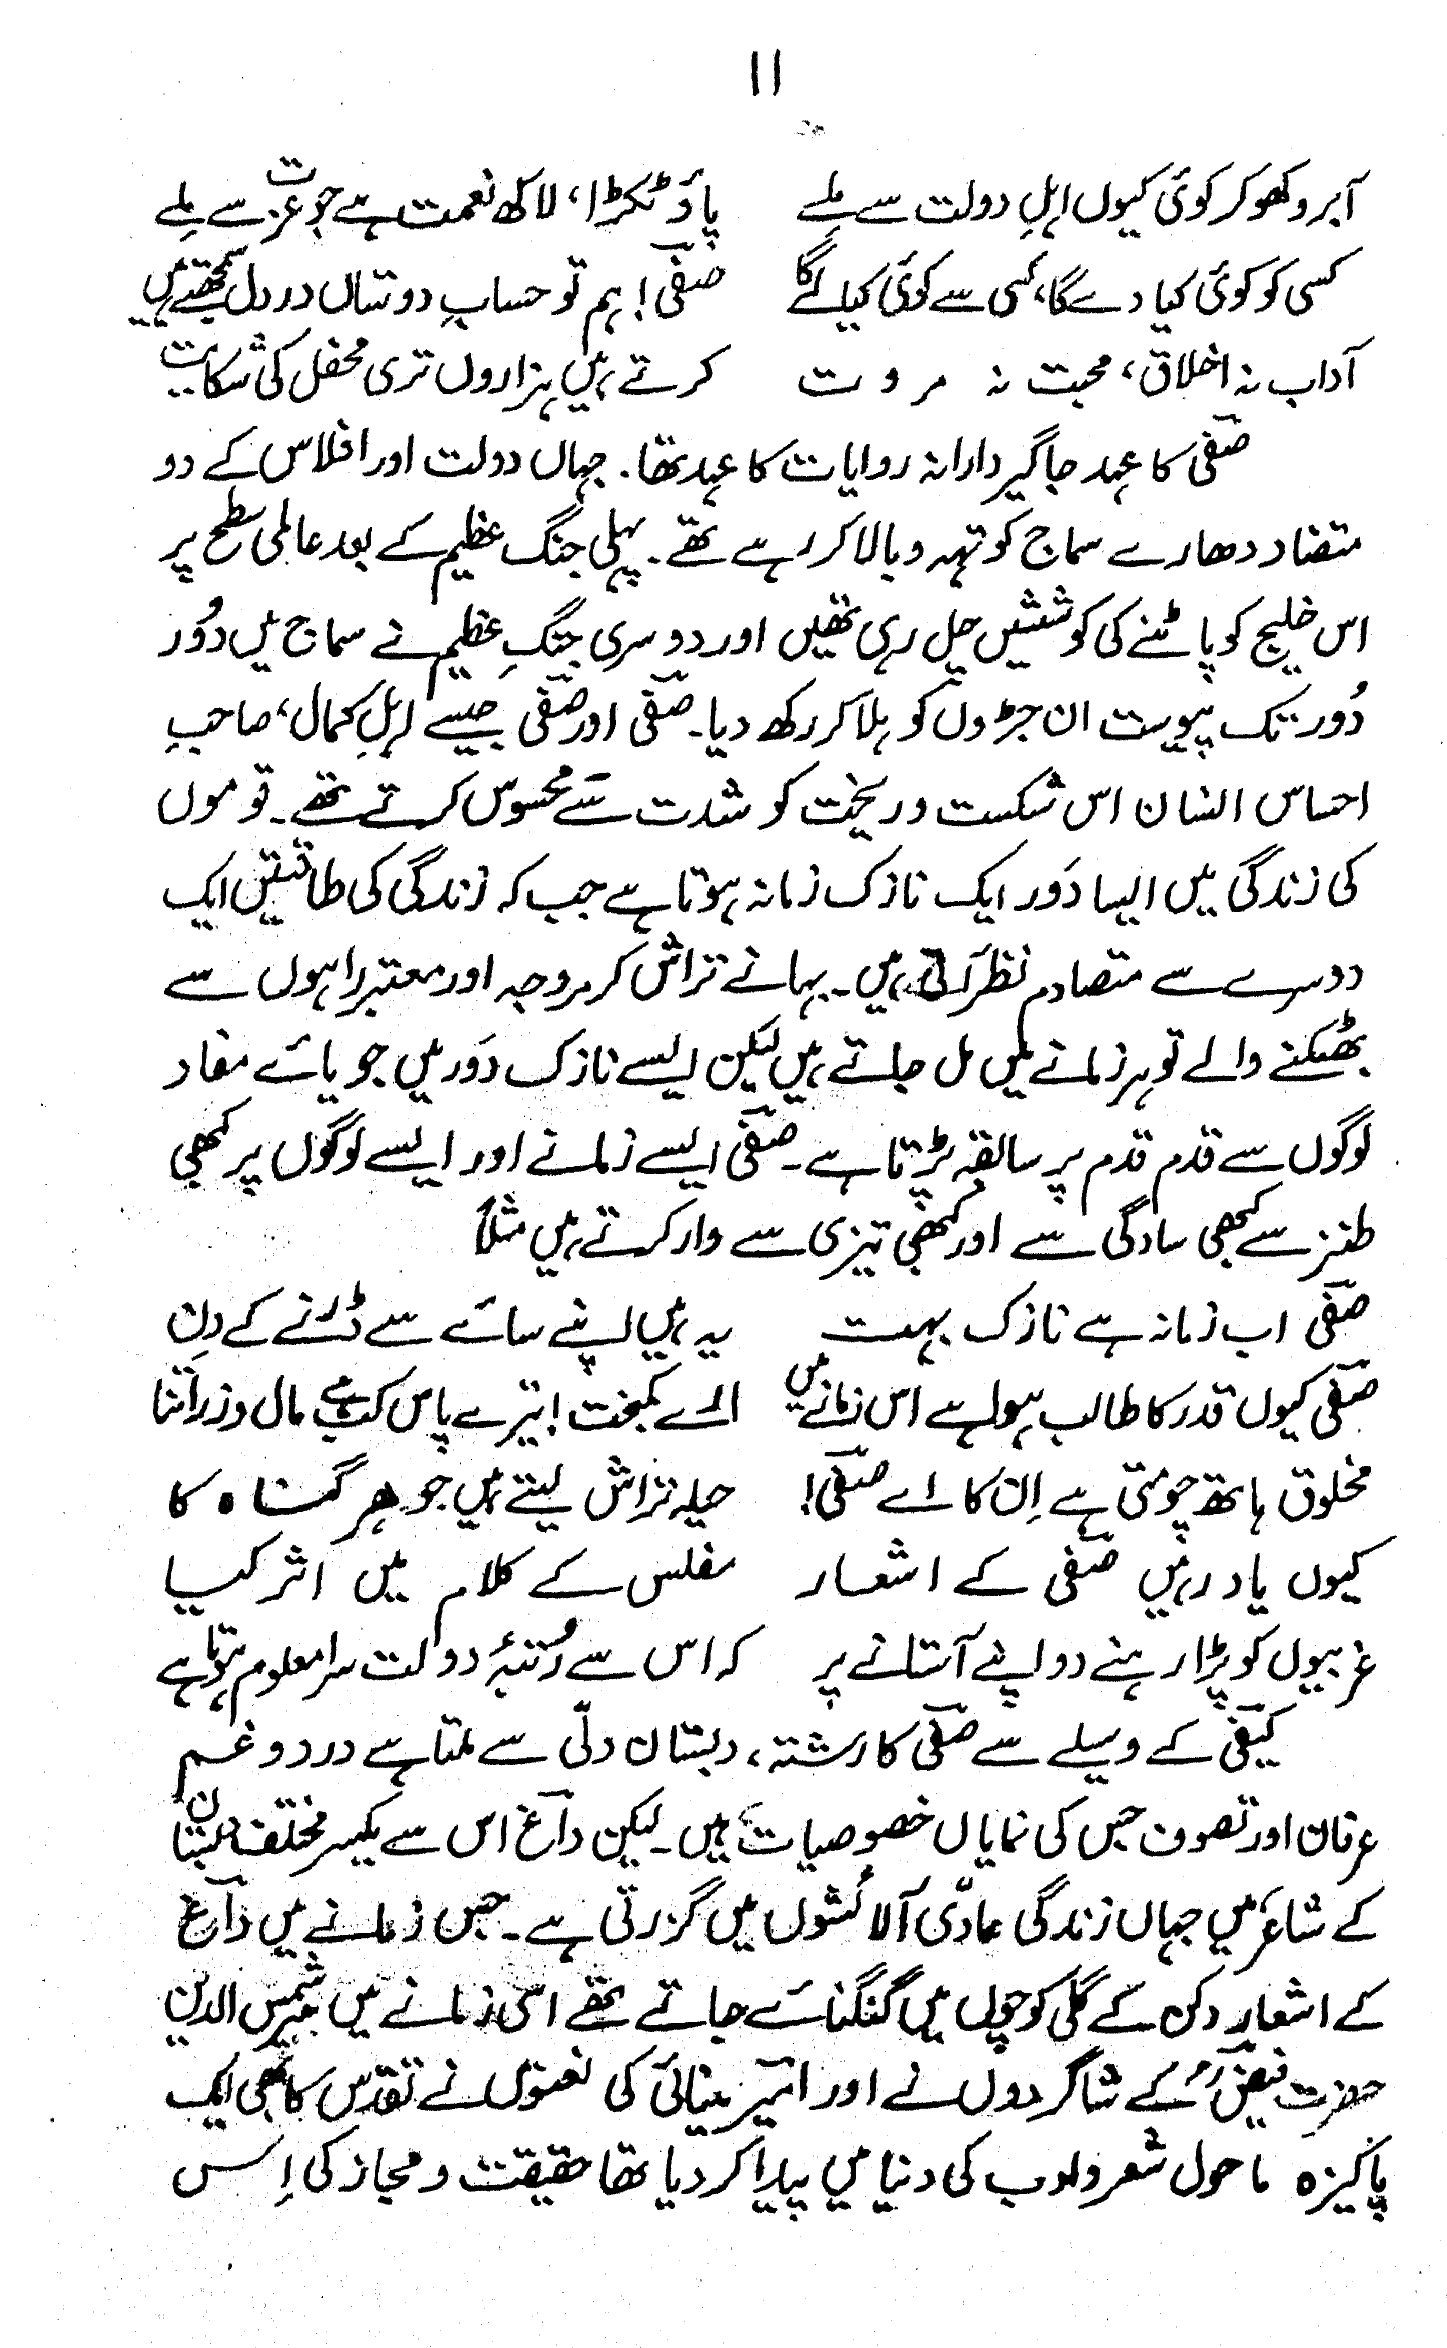 ۱۱
آبرو کھو کر کوئی کیوں اہلِ دولت سے ملے پاؤ ٹکڑا، لاکھ نعمت ہے جو عزت سے ملے
کسی کو کوئی کیا دے گا، کسی سے کوئی کیا لے گا صفیؔ! ہم تو حسابِ دوستاں در دل سمجھتے ہیں
آداب نہ اخلاق، محبت نہ مروت کرتے ہیں ہزاروں تری محفل کی شکایت
صفیؔ کا عہد جاگیردارانہ روایات کا عہد تھا۔ جہاں دولت اور افلاس کے دو
متضاد دھارے سماج کو تہہ و بالا کر رہے تھے۔ پہلی جنگ عظیم کے بعد عالمی سطح پر
اس خلیج کو پاٹنے کی کوششیں چل رہی تھیں اور دوسری جنگِ عظیم نے سماج میں دُور
دُور تک پیوست ان جڑوں کو ہلا کر رکھ دیا۔ صفیؔ اور صفیؔ جیسے اہلِ کمال، صاحبِ
احساس انسان اس شکست و ریخت کو شدت سے محسوس کرتے تھے۔ قوموں
کی زندگی میں ایسا دَور ایک نازک زمانہ ہوتا ہے جب کہ زندگی کی طاقتیں ایک
دوسرے سے متصادم نظر آتی ہیں۔ بہانے تراش کر مروجہ اور معتبر راہوں سے
بھٹکنے والے تو ہر زمانے میں مل جاتے ہیں لیکن ایسے نازک دَور میں جویائے مفاد
لوگوں سے قدم قدم پر سابقہ پڑتا ہے۔ صفیؔ ایسے زمانے اور ایسے لوگوں پر کبھی
طنز سے کبھی سادگی سے اور کبھی تیزی سے وار کرتے ہیں مثلاً
صفیؔ اب زمانہ ہے نازک بہت یہ ہیں اپنے سائے سے ڈرنے کے دِن
صفیؔ کیوں قدر کا طالب ہوا ہے اس زمانے میں ارے کمبخت! تیرے پاس کب ہے مال و زر اتنا
مخلوق ہاتھ چومتی ہے اِن کا اے صفیؔ! حیلہ تراش لیتے ہیں جو ہر گناہ کا
کیوں یاد رہیں صفیؔ کے اشعار مفلس کے کلام میں اثر کیا
غریبوں کو پڑا رہنے دو اپنے آستانے پر کہ اس سے رُتبۂ دولت سرا معلوم ہوتا ہے
کیفیؔ کے وسیلے سے صفیؔ کا رشتہ، دبستان دلّی سے ملتا ہے درد و غم
عرفان اور تصوف جس کی نمایاں خصوصیات ہیں۔ لیکن داغؔ اس سے یکسر مختلف دبستان
کے شاعر ہیں جہاں زندگی مادّی آلائشوں میں گزرتی ہے۔ جس زمانے میں داغؔ
کے اشعار دکن کے گلی کوچوں میں گنگنائے جاتے تھے اسی زمانے میں میر شمس الدین
حضرت فیضؔ کے شاگردوں نے اور امیرؔ مینائی کی نعتوں نے تقدس کا بھی ایک
پاکیزہ ماحول شعر و ادب کی دنیا میں پیدا کر دیا تھا حقیقت و مجاز کی اِس